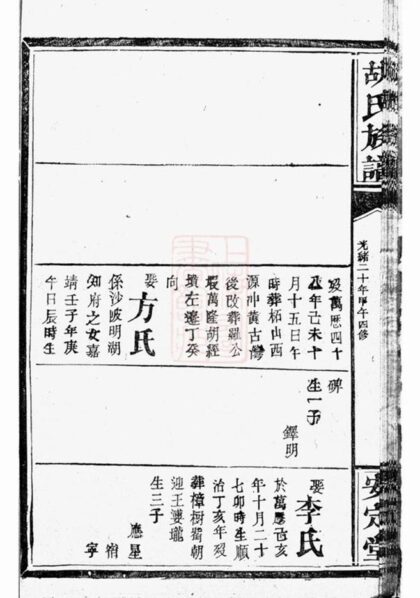 胡氏族譜
光緒二十年甲午四修
安定堂
歿萬歷四十
年己未十
月十五日午
時葬柘山西
源冲黃古灣
後改葬羅公
塅萬隆胡經
墳左邊丁癸
向
娶方氏
係沙陂明湖
知府之女嘉
靖壬子年庚
午日辰時生
碑
生一子
鐸明
娶李氏
於萬歷己亥
年十月二十
七卯時生順
治丁亥年歿
葬樟樹朝
迎王婆壠
生三子
應星
宿
寧